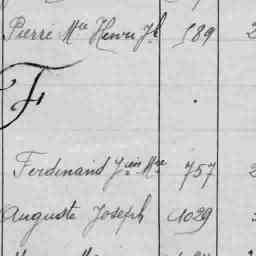 Pierre Mie Henri Jh 589 2
F
Ferdinand Jain Mie 757 2
Auguste Joseph 1029